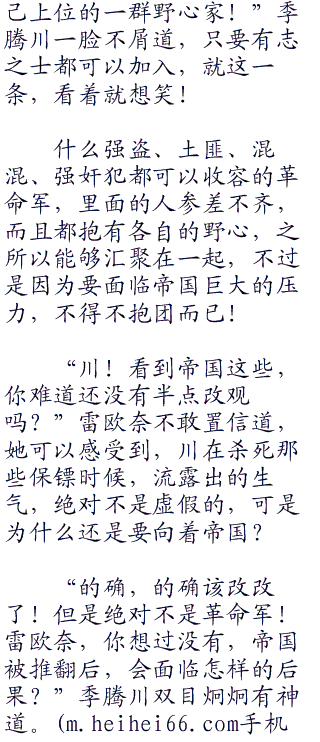 己上位的一群野心家！”季
腾川一脸不屑道，只要有志
之士都可以加入，就这一
条，看着就想笑！
什么强盗、土匪、混
混、强奸犯都可以收容的革
命军，里面的人参差不齐，
而且都抱有各自的野心，之
所以能够汇聚在一起，不过
是因为要面临帝国巨大的压
力，不得不抱团而已！
“川！看到帝国这些，
你难道还没有半点改观
吗？”雷欧奈不敢置信道，
她可以感受到，川在杀死那
些保镖时候，流露出的生
气，绝对不是虚假的，可是
为什么还是要向着帝国？
“的确，的确该改改
了！但是绝对不是革命军！
雷欧奈，你想过没有，帝国
被推翻后，会面临怎样的后
果？”季腾川双目炯炯有神
道。(m.heihei66.com手机